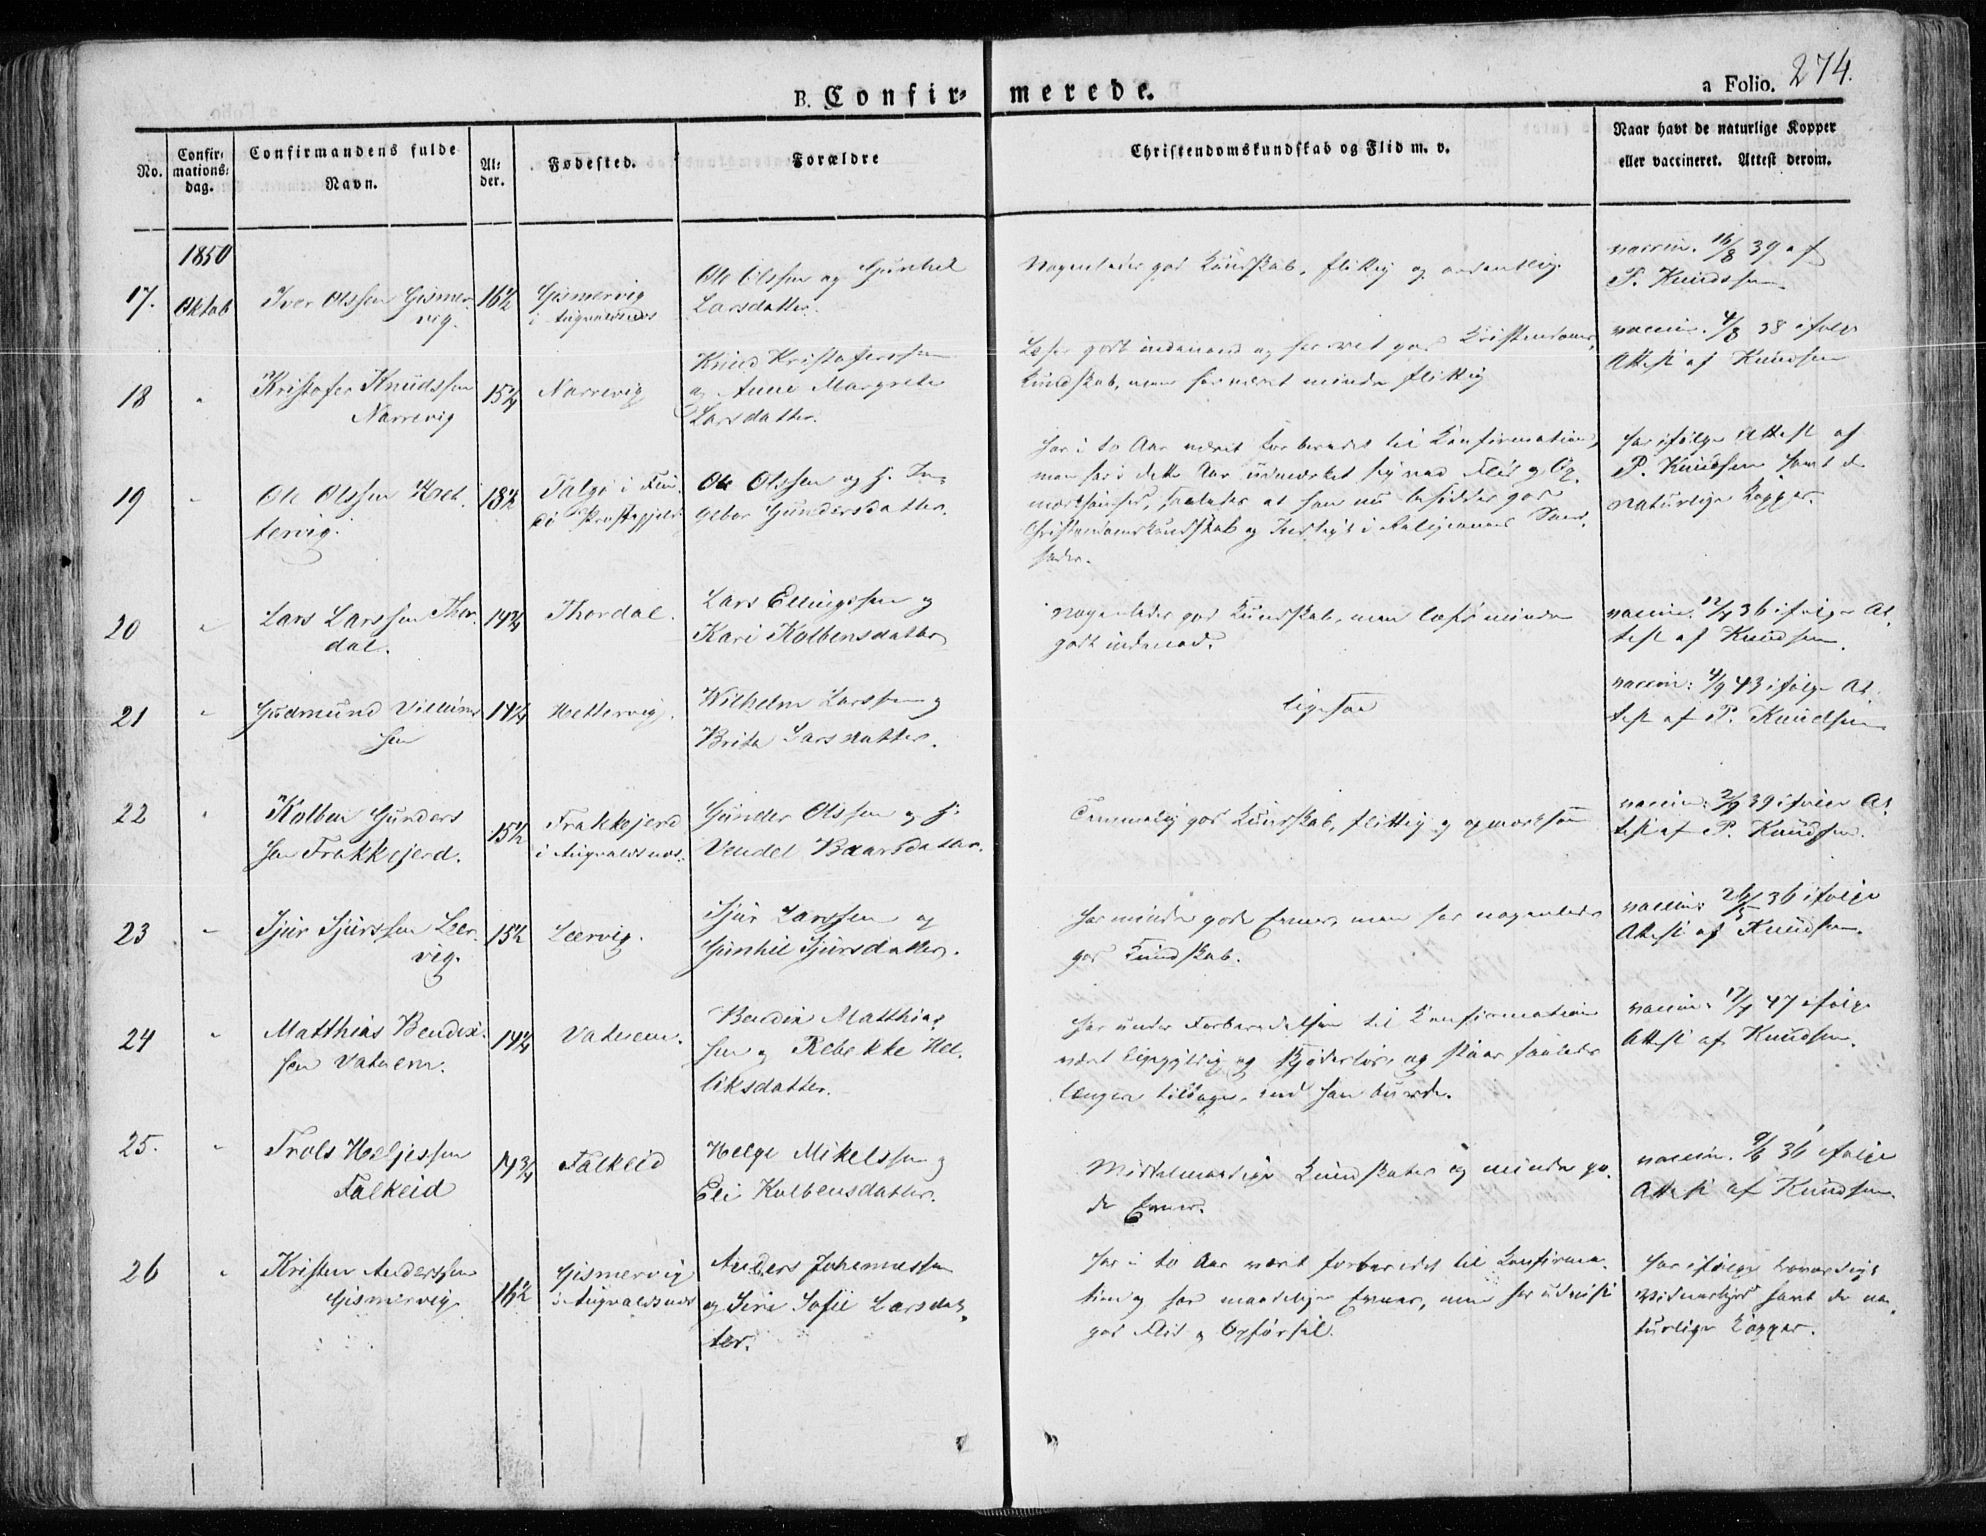 B. Confir- merede.
a Folio. 274.
No.
Confir-
mations-
dag.
Confirmandens fulde
Navn.
Al-
der.
Fødested.
Forældre
Christendomskundskab og Flid m. v.
Naar havt de naturlige Kopper
eller vaccineret. Attest derom.
1850
17.
Oktob
Iver Olssen Gismer-
vig.
16½
Gismervig
i Augvaldsnes
Ole Olssen og Gunhil
Larsdatter.
Nogenledes god Kundskab, flittig og ordentlig.
vaccin. 16/8 39 af
P. Knudssen.
18
Kristofer Knudssen
Narrevig
15¼
Narrevig
Knud Kristoferssen
og Anne Margrete
Larsdatter.
Læser godt indenad og har ret god Kristendoms-
kundskab, men har været mindre flittig
vaccin. 4/8 38 ifølge
Attest af Knudsen
19
Ole Olssen Het-
tervig.
18½
Talge i Fin-
dø Præstegjeld
Ole Olssen og H. In-
gebor Gundersdatter.
Har i to Aar været forberedet til Konfirmation,
men har i dette Aar udmærket sig ved Flid og Op-
mærksomhed, saaledes at han nu besidder god
Christendomskundskab og Indsigt i Religionens Sand-
heder.
Har ifølge Attest af
P. Knudsen havt de
naturlige Kopper.
20
Lars Larssen Thor-
dal.
14¾
Thordal.
Lars Ellingssen og
Kari Kolbensdatter
Nogenledes god Kundskab, men læser mindre
godt indenad.
vaccin. 12/7 36 ifølge At-
test af Knudsen.
21
Gudmund Villums-
sen
14¼
Hettervig.
Wilhelm Larssen og
Brita Larsdatter.
ligesaa
vaccin: 4/9 43 ifølge At-
test af P. Knudsen
22
Kolben Gunders-
sen Frakkejerd.
15½
Frakkejerd
i Augvaldsnes.
Gunder Olssen og H.
Vendel Baarsdatter.
Temmelig god Kundskab, flittig og opmærksom
vaccin: 2/9 39 ifølge At-
test af P. Knudsen.
23
Sjur Sjurssen Leer-
vig.
15½
Leervig.
Sjur Larssen og
Gunhil Sjursdatter.
Har mindre gode Evner, men har nogenledes
god Kundskab.
vaccin: 26/5 36 ifølge
Attest af Knudsen.
24
Matthias Bendix-
sen Vatnem.
14¼
Vatnem.
Bendix Matthias-
sen og Rebekke Hel-
liksdatter.
Har under Forberedelsen til Konfirmation
været ligegyldig og skjødesløs, og staar saaledes
længere tilbage, end han burde.
vaccin: 17/7 47 ifølge
Attest af Knudsen.
25.
Trols Heljessen
Falkeid
14¾
Falkeid
Helge Mikelssen og
Eli Kolbensdatter.
Middelmaadige Kundskaber og mindre go-
de Evner.
vaccin. 9/6 36 ifølge
Attest af Knudsen.
26
Kristen Anderssen
Gismervig
16½
Gismervig
i Augvaldsnes
Anders Johannessen
og Siri Sofie Larsdat-
ter.
Har i to Aar været forberedet til Konfirma-
tion og har maadelige Evner, men har udvist
god Flid og Opførsel.
Har ifølge troværdigt
Vidnesbyrd havt de na-
turlige Kopper.